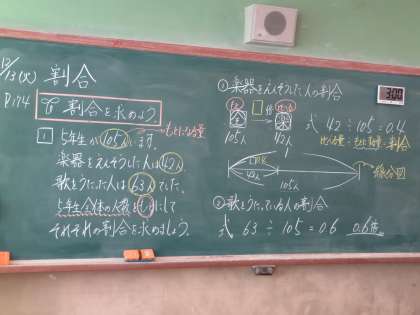 12/13(火) 割合
P.174
割合を求めよう。
1 5年生が105人います。 もとにする量
楽器をえんそうした人は42人
歌をうたった人は63人でした。
5年生全体の人数をもとにして
それぞれの割合を求めましょう。
① 楽器をえんそうした人の割合
3:00
□倍
105人 42人
式 42 ÷ 105 = 0.4
比べる量 ÷ もとにする量 = 割合
42人
105人
線分図
② 歌をうたっている人の割合
式 63 ÷ 105 = 0.6 0.6倍